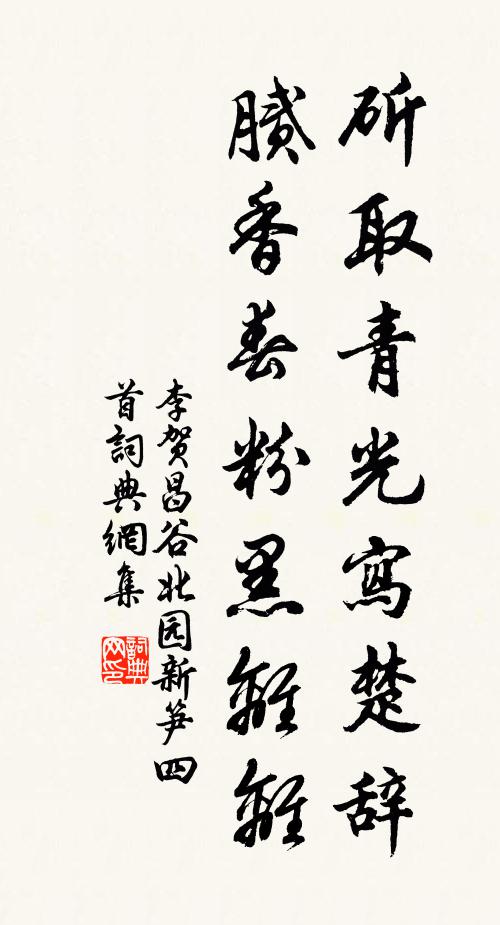 斫取青光寫楚辞
膩香春粉黑離離
李贺昌谷北园新笋四
首詞典網集
詞典
网印